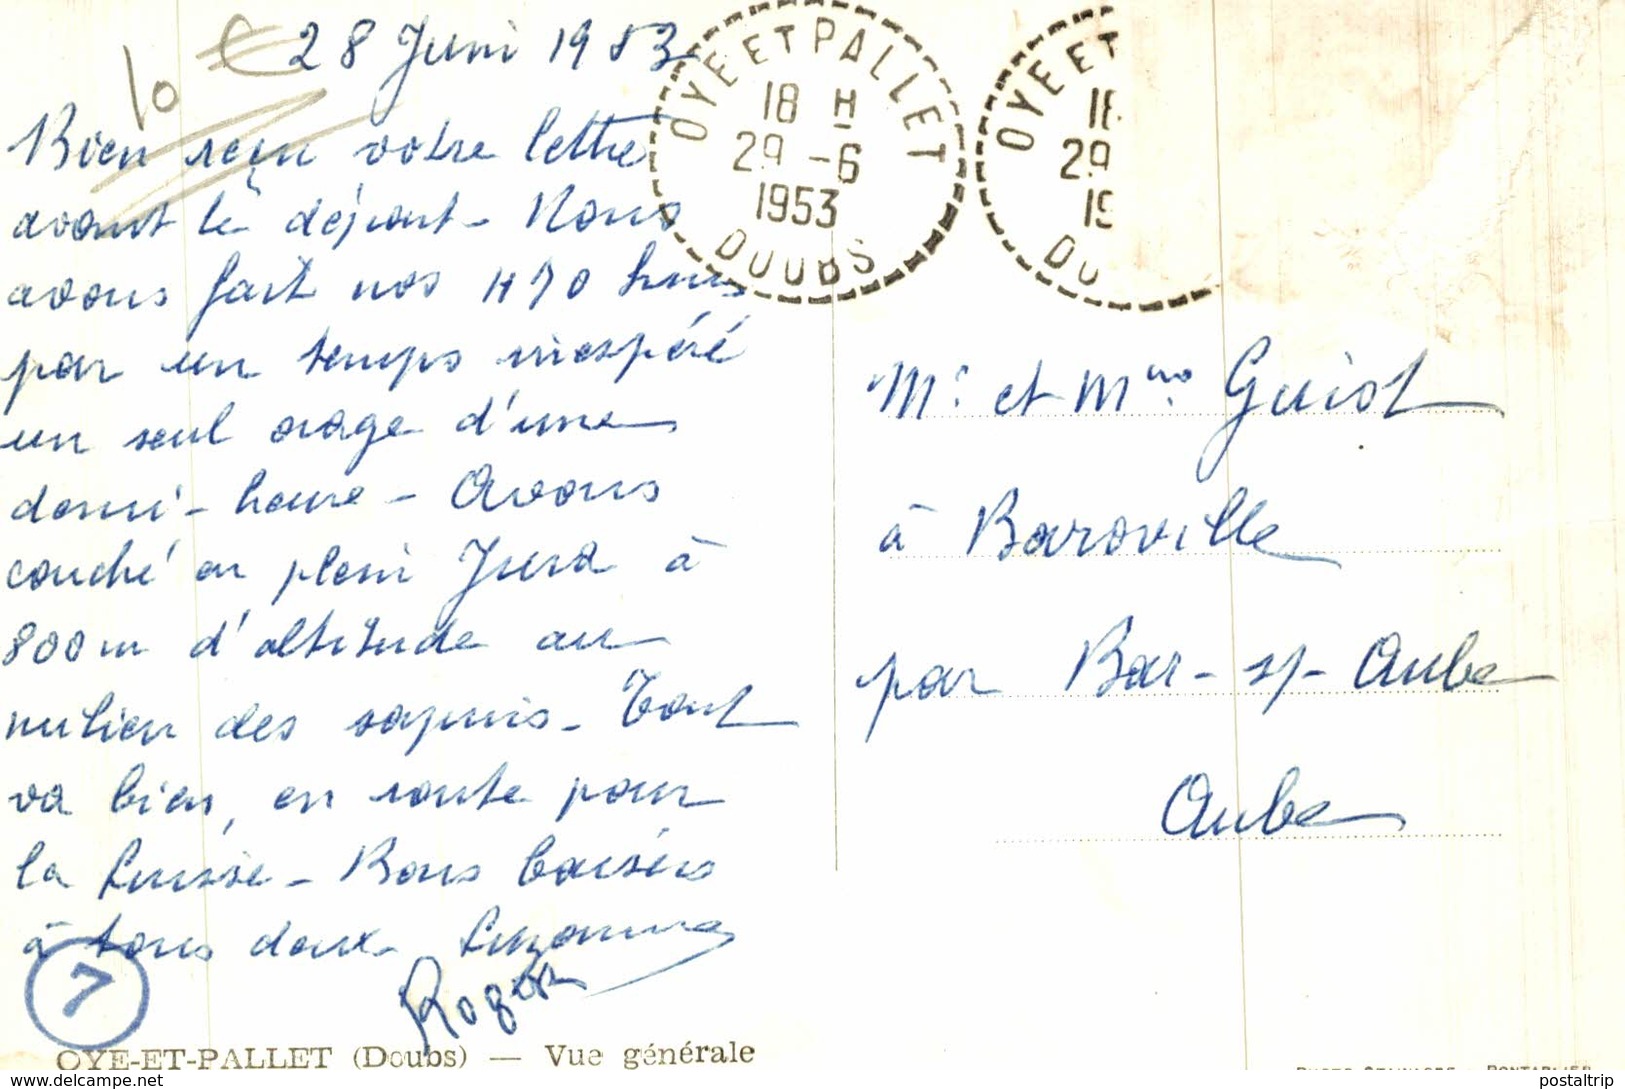 10 €
28 Juin 1953
Bien reçu votre lettre
avant le départ - Nous
avons fait nos 470 kms
par un temps inespéré
un seul orage d'une
demi-heure - Avons
couché en plein Jura à
800 m d'altitude au
milieu des sapins - Tout
va bien, en route pour
la Suisse - Bons baisers
à tous deux - Suzanne
Roger
7
OYE-ET-PALLET (Doubs) — Vue générale
OYE ET PALLET
18 H
29 - 6
1953
DOUBS
OYE ET
18
29
19
DOU
Mr et Mme Guiot
à Baroville
par Bar - s/ - Aube
Aube
postaltrip